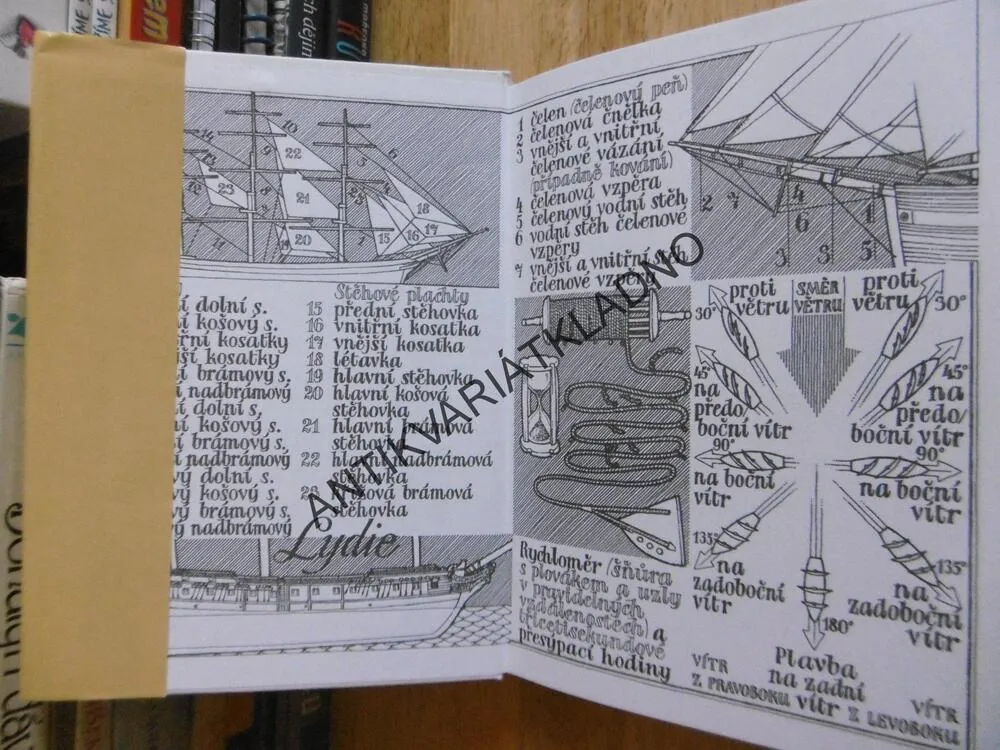 10
22
23
21
20
15
16
17
18
Stěhové plachty
í dolní s.
í košový s.
třní kosatky
jší kosatky
í brámový s.
í nadbrámový
í dolní s.
í košový s.
í brámový s.
í nadbrámový
vý dolní s.
vý košový s.
vý brámový s.
vý nadbrámový
15 přední stěhovka
16 vnitřní kosatka
17 vnější kosatka
18 létavka
19 hlavní stěhovka
20 hlavní košová
stěhovka
21 hlavní brámová
stěhovka
22 hlavní nadbrámová
stěhovka
23 křížová brámová
stěhovka
Lydie
1 čelen (čelenový peň)
2 čelenová čnělka
3 vnější a vnitřní
čelenové vázání
(případně kování)
4 čelenová vzpěra
5 čelenový vodní stěh
6 vodní stěh čelenové
vzpěry
7 vnější a vnitřní stěh
čelenové vzpěry
2 7 4 1
6
3 3 5
Rychloměr (šňůra
s plovákem a uzly
v pravidelných
vzdálenostech) a
třicetisekundové
přesýpací hodiny
proti
větru
SMĚR
VĚTRU
proti
větru
30°
30°
45°
na
předo/
boční vítr
45°
na
předo/
boční vítr
90°
na boční
vítr
90°
na boční
vítr
135°
na
zadoboční
vítr
135°
na
zadoboční
vítr
180°
Plavba
na zadní
vítr
VÍTR
Z PRAVOBOKU
VÍTR
Z LEVOBOKU
ANTIKVARIÁTKLADNO